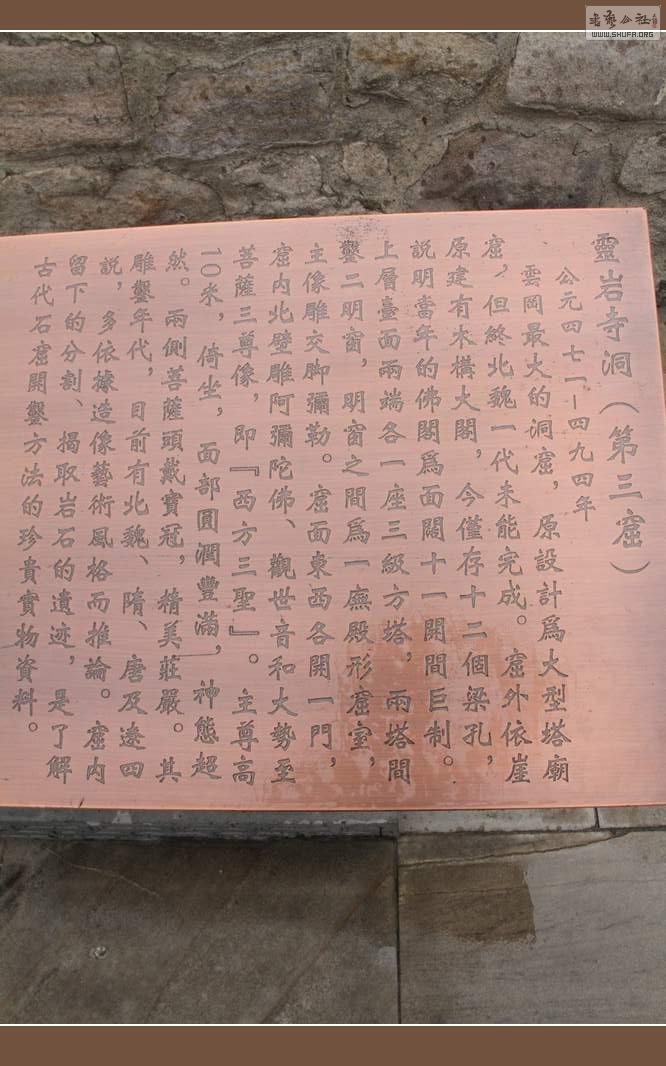 靈岩寺洞（第三窟）
公元四七一—四九四年
雲岡最大的洞窟，原設計爲大型塔廟
窟，但終北魏一代未能完成。窟外依崖
原建有木構大閣，今僅存十二個梁孔，
説明當年的佛閣爲面闊十一開間巨制。
上層臺面兩端各一座三級方塔，兩塔間
鑿二明窗，明窗之間爲一廡殿形窟室，
主像雕交脚彌勒。窟面東西各開一門，
窟内北壁雕阿彌陀佛、觀世音和大勢至
菩薩三尊像，即『西方三聖』。主尊高
10米，倚坐，面部圓潤豐滿，神態超
然。兩側菩薩頭戴寳冠，精美莊嚴。其
雕鑿年代，目前有北魏、隋、唐及遼四
説，多依據造像藝術風格而推論。窟内
留下的分割、揭取岩石的遺迹，是了解
古代石窟開鑿方法的珍貴實物資料。
书艺公社
WWW.SHUFA.ORG